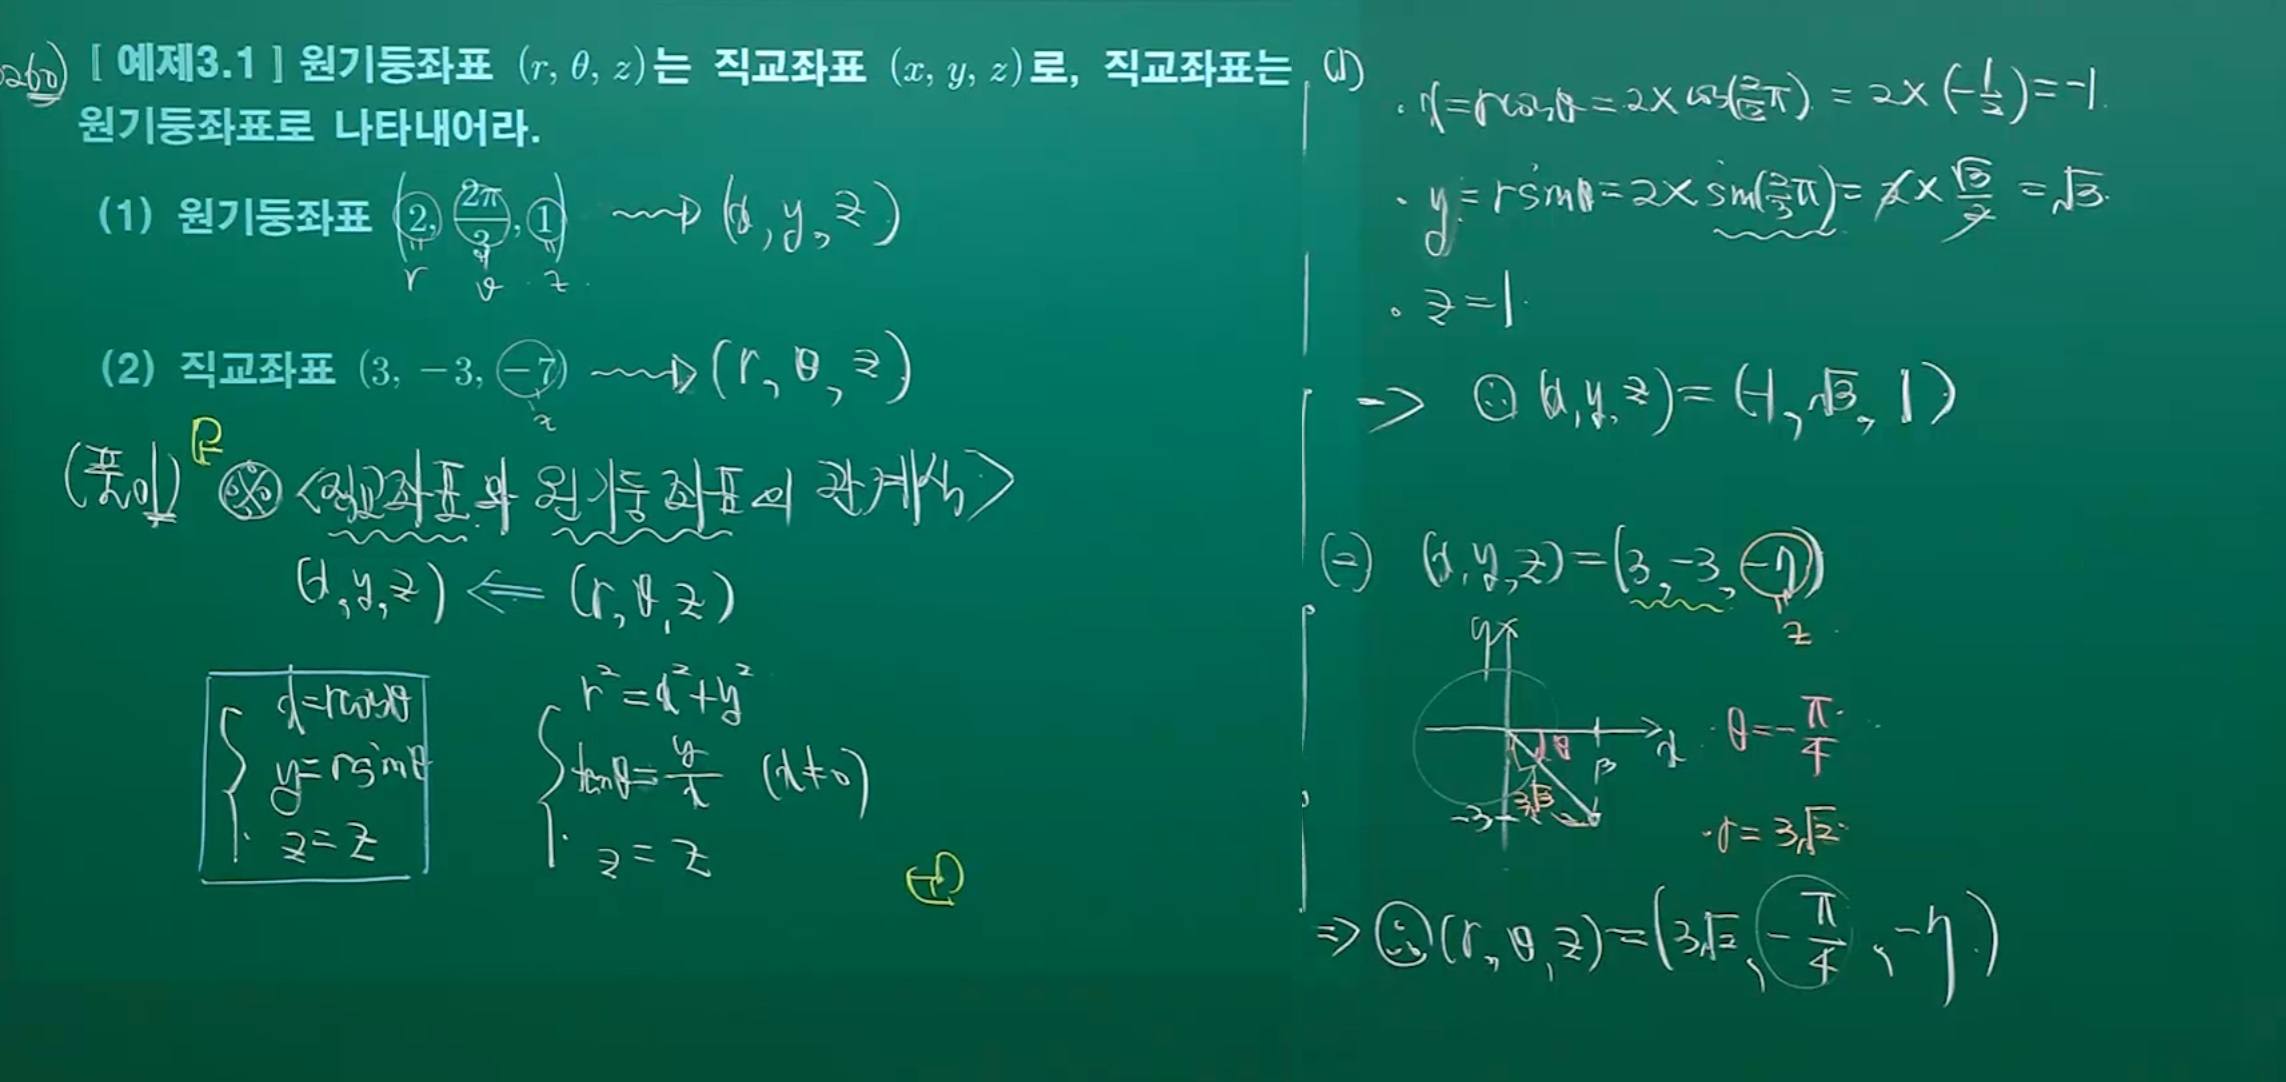 260) [예제3.1] 원기둥좌표 (r, θ, z)는 직교좌표 (x, y, z)로, 직교좌표는
원기둥좌표로 나타내어라.
(1) 원기둥좌표 (2, 2π/3, 1) ⟶ (x, y, z)
r θ z
(2) 직교좌표 (3, −3, −7) ⟶ (r, θ, z)
z
(풀이) ※ <직교좌표와 원기둥좌표의 관계식>
(x, y, z) ⇐ (r, θ, z)
x = rcosθ
y = rsinθ
z = z
r² = x² + y²
tanθ = y/x (x ≠ 0)
z = z
(1)
· x = rcosθ = 2 × cos(2/3 π) = 2 × (−1/2) = −1.
· y = rsinθ = 2 × sin(2/3 π) = 2 × √3/2 = √3.
· z = 1.
→ ∴ (x, y, z) = (−1, √3, 1)
(2) (x, y, z) = (3, −3, −7)
z
y
x
θ
3
3√2
−3
· θ = −π/4
· r = 3√2
⇒ ∴ (r, θ, z) = (3√2, −π/4, −7)